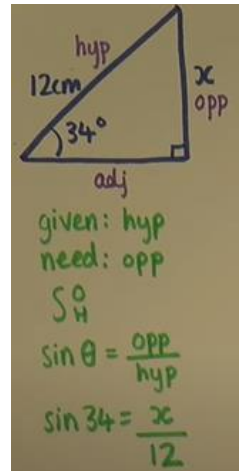 hyp
12cm
x
opp
34°
adj
given: hyp
need: opp
S O H
sin θ = opp / hyp
sin 34 = x / 12